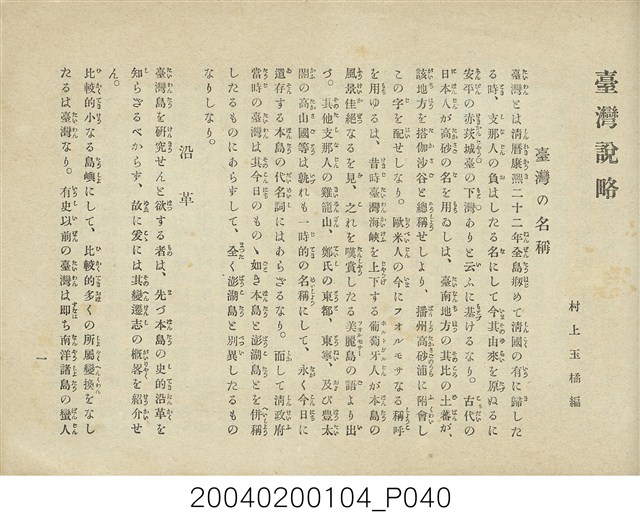 臺灣說略
村上玉橘編
臺灣の名稱
臺灣とは淸曆康熙二十二年全島初めて淸國の有に歸した
る時、支那人の負はしたる名にして今其由來を原ぬるに
安平の赤茨城臺の下灣ありと云ふに基けるなり。古代の
日本人が高砂の名を用ゐしは、臺南地方の其比の土蕃が、
該地方を搭伽沙谷と總稱せしより、播州高砂浦に附會し
この字を配せしなり。歐米人の今にフオルモサなる稱呼
を用ゆるは、昔時臺灣海峽を上下する葡萄牙人が本島の
風景佳絕なるを見、之れを嘆賞したる美麗島の語より出
づ。其他支那人の雞籠山、鄭氏の東都、東寧、及び豊太
閤の高山國等は孰れも一時的の名稱にして、永く今日に
還存する本島の代名詞にはあらざるなり。而して淸政府
當時の臺灣は其今日のものゝ如き本島と澎湖島とを併稱
したるものにあらずして、全く澎湖島と別異したるもの
なりしなり。
沿革
臺灣島を研究せんと欲する者は、先づ本島の史的沿革を
知らざるべからず、故に爰には其變遷志の概畧を紹介せ
ん。
比較的小なる島嶼にして、比較的多くの所屬變換をなし
たるは臺灣なり。有史以前の臺灣は卽ち南洋諸島の蠻人
一
20040200104_P040